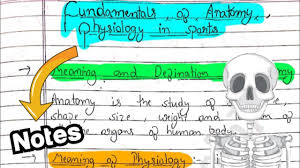 Fundamentals of Anatomy
Physiology in parts
Meaning and Defination Anatomy
Anatomy is the study of
shape, size, weight and
organs of human body.
Notes
Meaning of Physiology